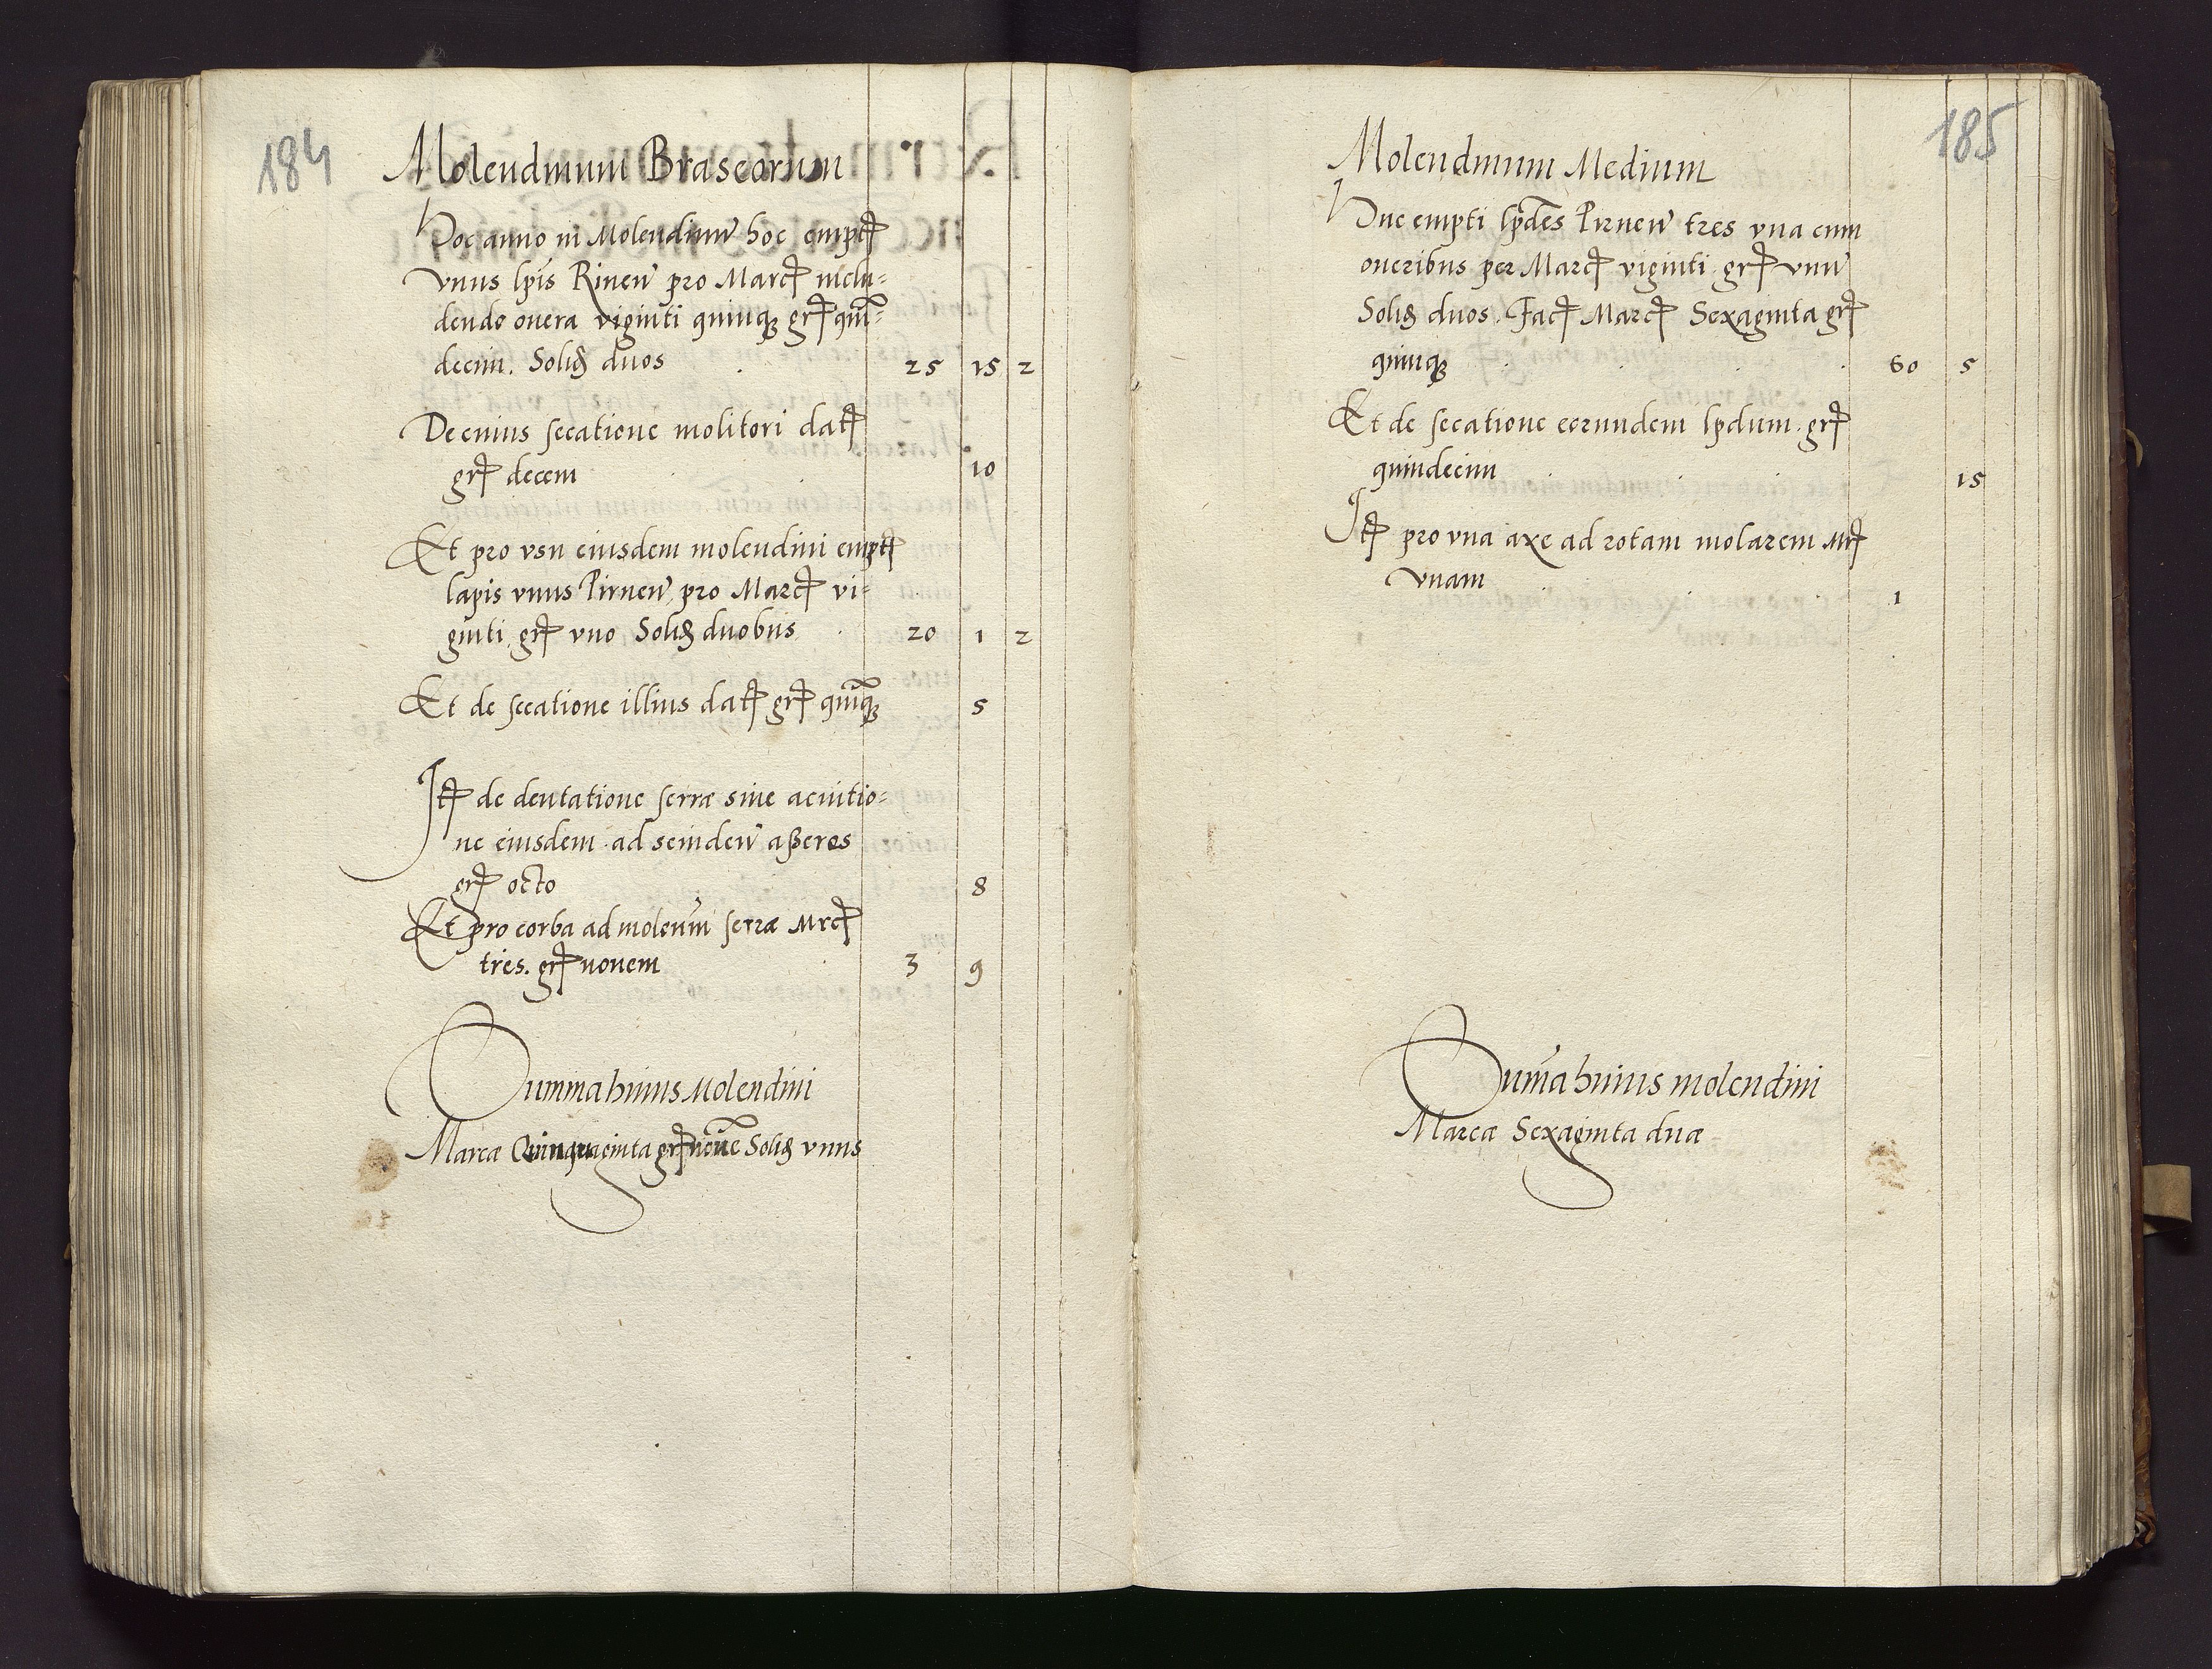 184
Molendinum Braseorum
Hoc anno in Molendinū hoc empt
vnus lpis Rinen̄ pro Marc inclu=
dendo onera viginti quinq gr quin=
decim. Solid duos 25 15 2
De cuius secatione molitori dat
gr decem 10
Et pro vsu eiusdem molendini empt
lapis vnus Pirnen̄ pro Marc vi=
ginti gr vno Solid duobus 20 1 2
Et de secatione illius dat gr quīq 5
It de dentatione serræ siue acutio=
ne eiusdem ad scinden̄ aßeres
gr octo 8
Et pro corba ad molen̄m serræ Mrc
tres. gr nouem 3 9
Summa huius Molendini
Marcæ Quinquaginta gr nouē Solid vnus
185
Molendinum Medium
Huc empti lpdes Pirnen̄ tres vna cum
oneribus per Marc viginti gr vnū
Solid duos. Fac Marc Sexaginta gr
quinq 60 5
Et de secatione eorundem lpdum gr
quindecim 15
It pro vna axe ad rotam molarem Mr
vnam 1
Sum̄a huius molendini
Marcæ Sexaginta duæ